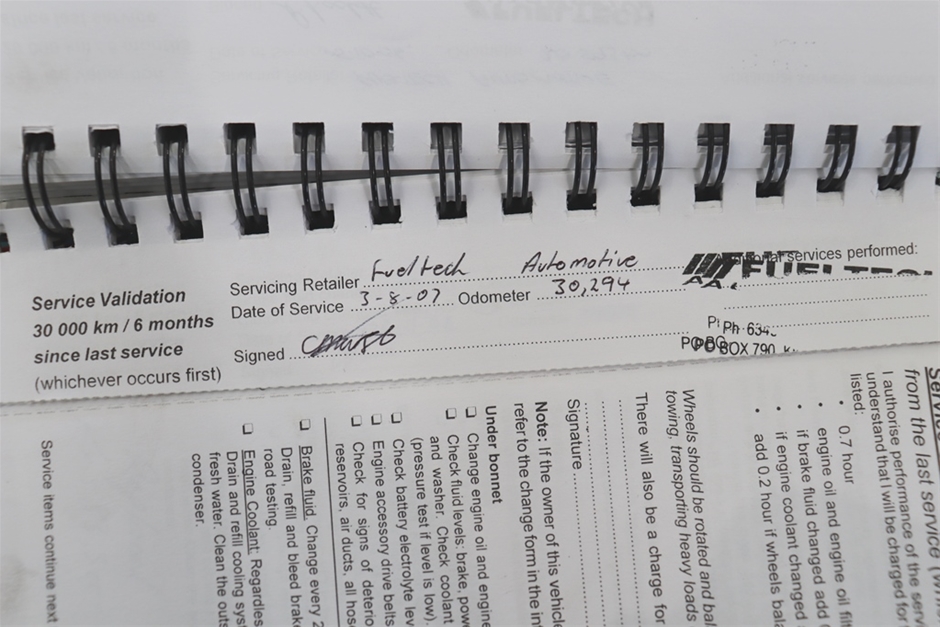 Service Validation
30 000 km / 6 months
since last service
(whichever occurs first)
Servicing Retailer Fueltech Automotive
Date of Service 3-8-07 Odometer 30,294
Signed
services performed:
FUELTEC
Ph 634
PO BOX 790
from the last service
I authorise performance of the serv
understand that I will be charged for
listed:
• 0.7 hour
• engine oil and engine oil filt
• if brake fluid changed add
• if engine coolant changed
• add 0.2 hour if wheels bala
Wheels should be rotated and bal
towing, transporting heavy loads
There will also be a charge for
Signature
Note: If the owner of this vehicle
refer to the change form in the in
Under bonnet
❑ Change engine oil and engine
❑ Check fluid levels: brake, powe
and washer. Check coolant
(pressure test if level is low).
❑ Check battery electrolyte lev
❑ Engine accessory drive belts
❑ Check for signs of deterio
reservoirs, air ducts, all hos
❑ Brake fluid. Change every 2
Drain, refill and bleed brake
road testing.
❑ Engine Coolant: Regardles
Drain and refill cooling sys
fresh water. Clean the outs
condenser.
Service items continue next